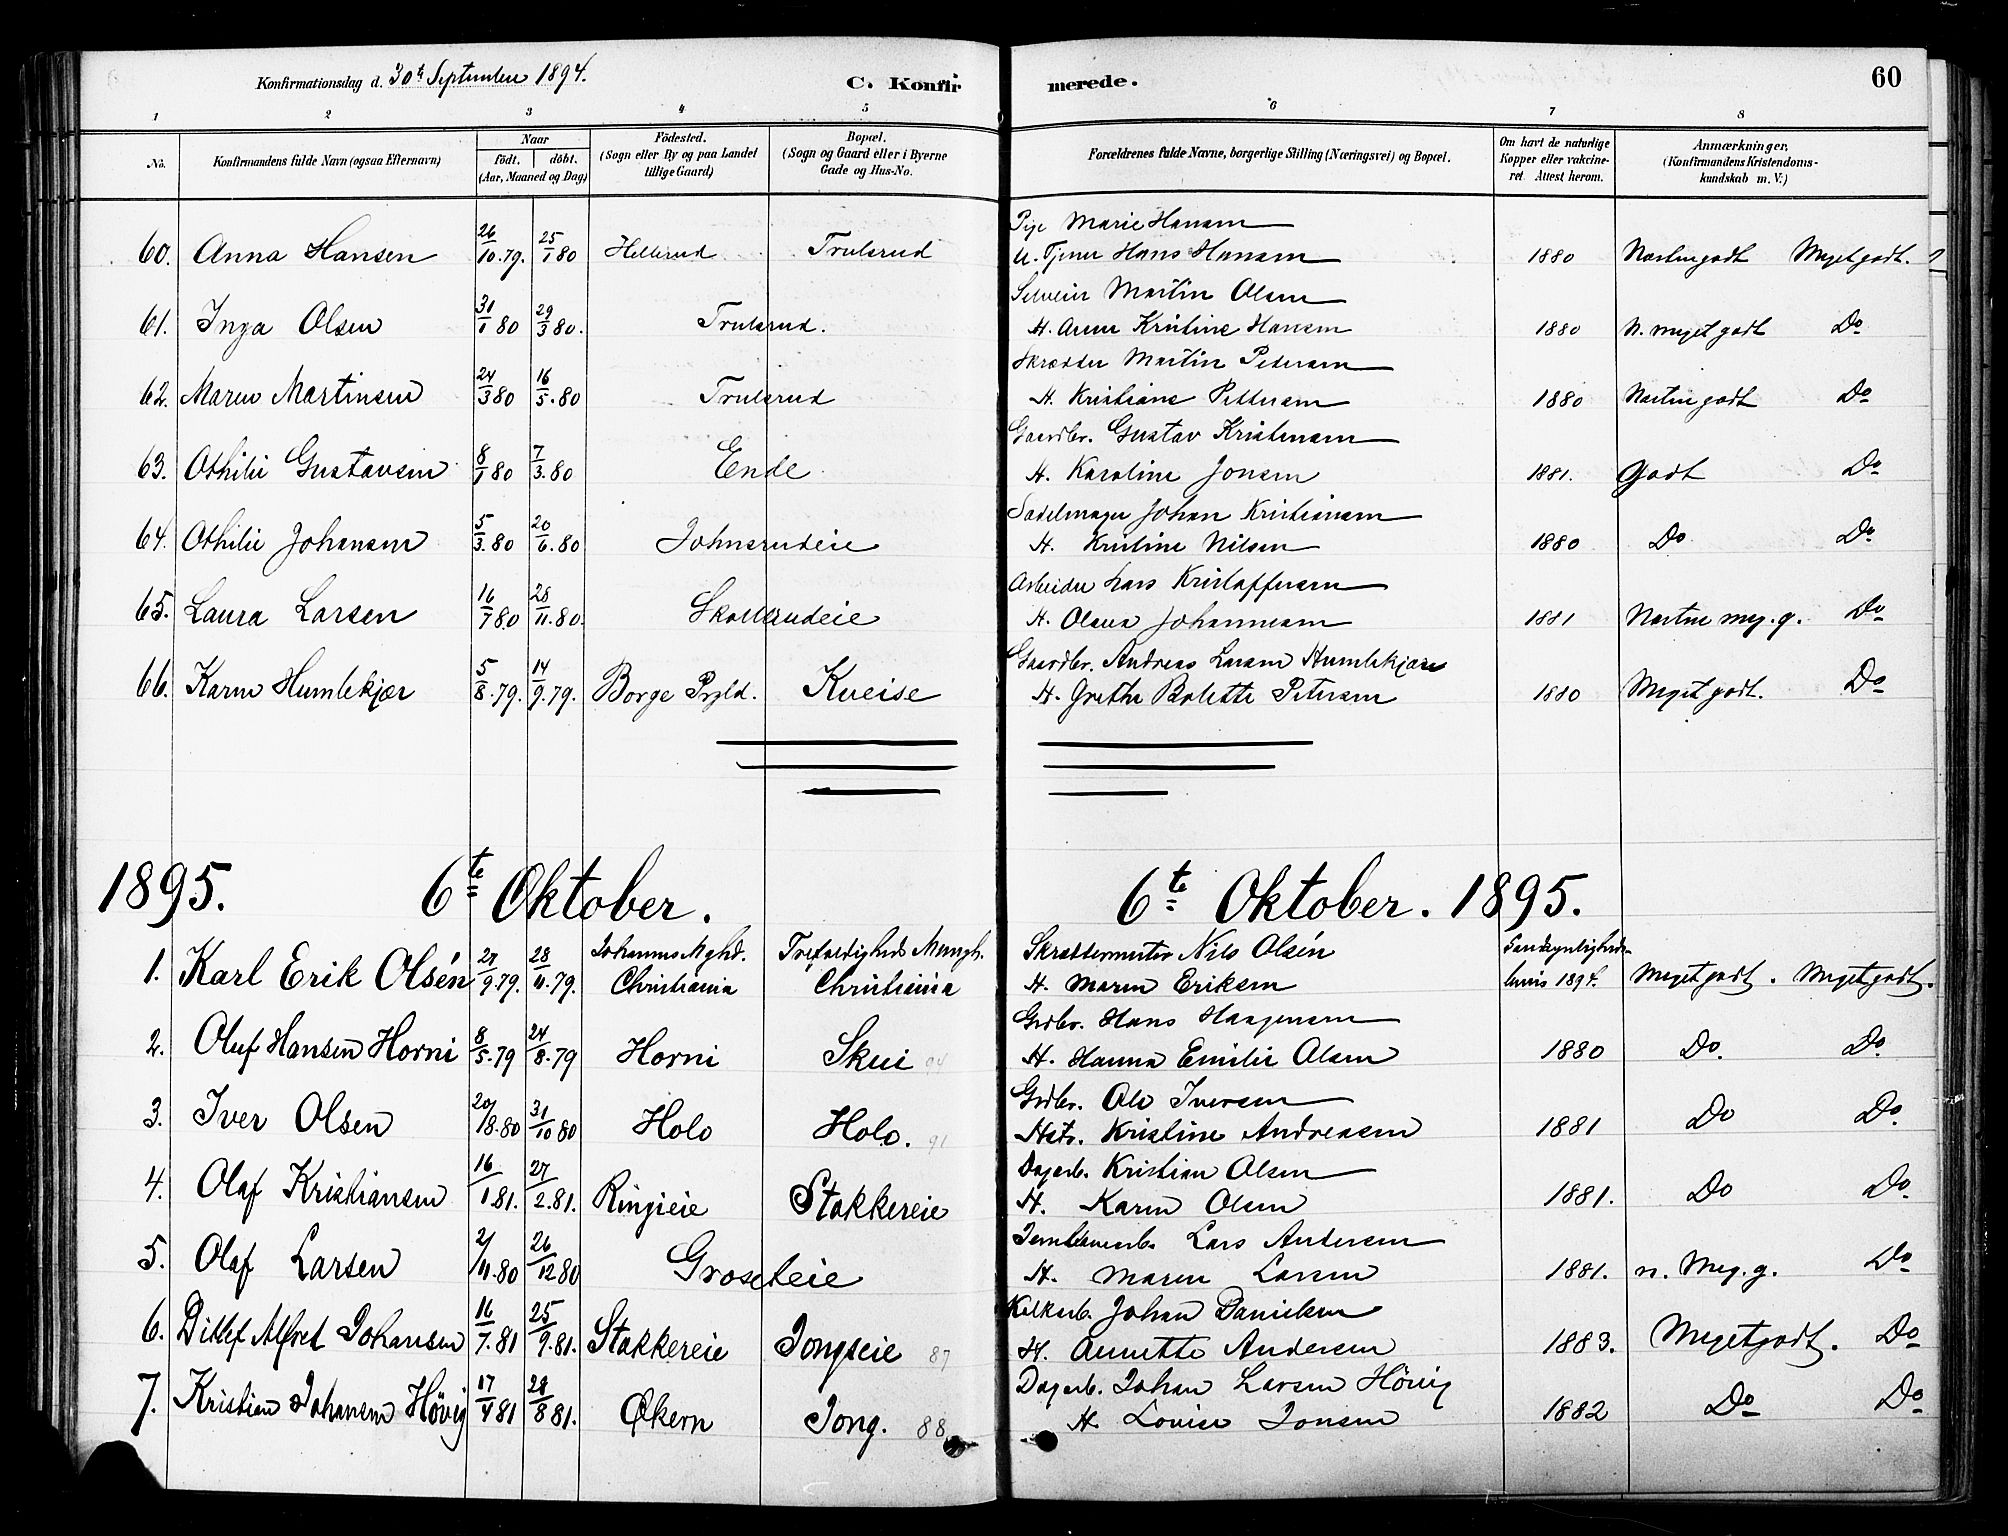 Konfirmationsdag d. 30te September 1894.
C. Konfirmerede.
60
1 2 3 4 5 6 7 8
No. Konfirmandens fulde Navn (ogsaa Efternavn) Naar födt. döbt. (Aar, Maaned og Dag) Födested. (Sogn eller By og paa Landet tillige Gaard) Bopæl. (Sogn og Gaard eller i Byerne Gade og Hus-No. Forældrenes fulde Navne, borgerlige Stilling (Næringsvei) og Bopæl. Om havt de naturlige Kopper eller vakcineret. Attest herom. Anmærkninger. (Konfirmandens Kristendomskundskab m. V.)
Pige Marie Hansen
60. Anna Hansen 26/10.79. 25/1 80 Hellerud Trulsrud U. Tjener Hans Hansen 1880 Næsten godt Meget godt.
Selveier Martin Olsen
61. Inga Olsen 31/1 80 29/3 80. Trulsrud. H. Anne Kristine Hansen 1880 N. meget godt Do
Skrædder Martin Petersen
62. Maren Martinsen 24/3 80 16/5.80 Trulsrud H. Kristiane Pettersen 1880 Næsten godt Do
Gaardbr. Gustav Kristensen
63. Othilie Gustavsen 8/1 80 7/3.80 Ende H. Karoline Jonsen 1881. Godt Do
Sadelmager Johan Kristiansen
64. Othilie Johansen 5/3.80 20/6.80 Johnsrudeie H. Kristine Nilsen 1880 Do Do
Arbeider Lars Kristoffersen
65. Laura Larsen 16/7 80 28/11.80. Skollerudeie H. Olava Johannesen 1881 Næsten meg. g. Do
Gaardbr. Andreas Larsen Humlekjær
66. Karen Humlekjær 5/8.79. 14/9.79. Borge Prgld. Kveise H. Grethe Bolette Petersen 1880 Meget godt. Do
1895. 6te Oktober. 6te Oktober. 1895.
Johannes Mghd. Trefoldigheds Mengh. Skræddermester Nils Olsén Sandsynligheds-
1. Karl Erik Olsén 27/9.79. 28/11.79. Christiania Christiania H. Maren Eriksen 1894. Meget godt. Meget godt.
Grdbr. Hans Haagensen
2. Oluf Hansen Horni 8/5.79 24/8.79 Horni Skui 94 H. Hanna Emilie Olsen 1880 Do. Do
Grdbr. Ole Iversen
3. Iver Olsen 20/8.80 31/10 80 Holo Holo. 91 Hstr. Kristine Andreasen 1881 Do Do.
Dagarb. Kristian Olsen
4. Olaf Kristiansen 16/1 81. 27/2.81. Ringieie Stokkereie H. Karen Olsen 1881. Do Do
Lars Andersen
5. Olaf Larsen 2/11.80 26/12 80 Groseteie H. Maren Larsen 1881. n. Meg. g. Do
Kalkarb. Johan Danielsen
6. Ditlef Alfred Johansen 16/7.81 25/9.81. Stokkereie Jongseie 87 H. Annette Andersen 1883. Meget godt. Do
Dagarb. Johan Larsen Hövig
7. Kristian Johansen Hövig 17/4 81 28/8 81. Økern Jong. 88 H. Lovise Jonsen 1882 Do Do